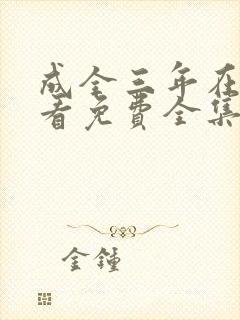 成全三年在
看免费全集
金锺